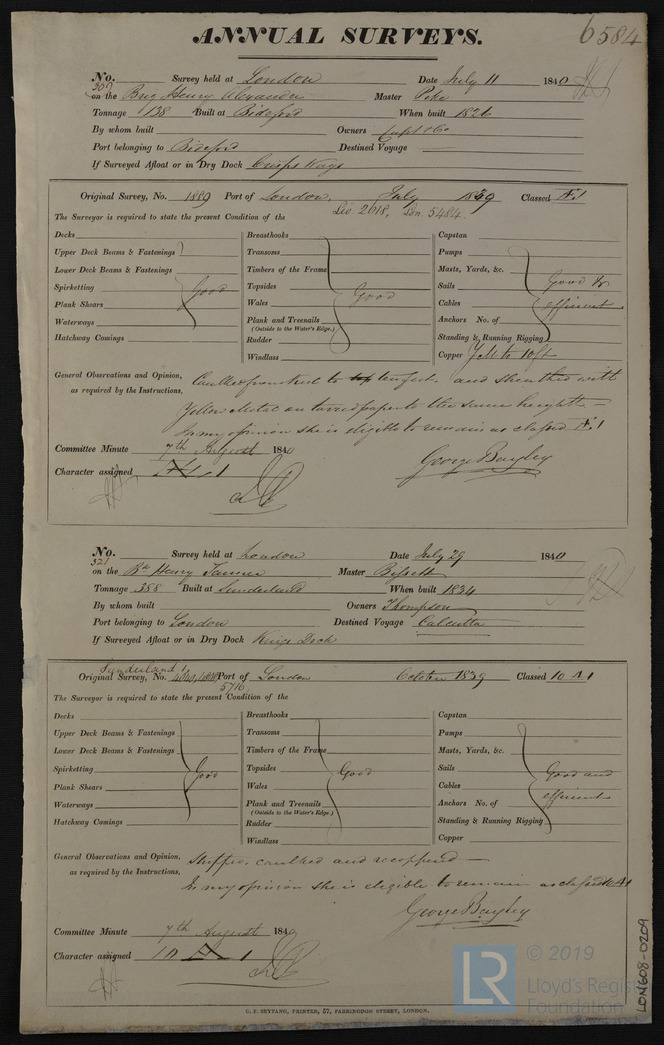 ANNUAL SURVEYS.
6584
No. 309 Survey held at London Date July 11 1840
on the Brig Henry Alexander Master Poke
Tonnage 138 Built at Bideford When built 1826
By whom built Owners Capt & Co
Port belonging to Bideford Destined Voyage —
If Surveyed Afloat or in Dry Dock Crisps Ways
Original Survey, No. 1889 Port of London, July 1839 Classed Æ1
Liv 2618, Lon. 5484.
The Surveyor is required to state the present Condition of the
Decks
Upper Deck Beams & Fastenings
Lower Deck Beams & Fastenings
Spirketting Good
Plank Shears
Waterways
Hatchway Comings
Breasthooks
Transoms
Timbers of the Frame
Topsides Good
Wales
Plank and Treenails
(Outside to the Water's Edge.)
Rudder
Windlass
Capstan
Pumps
Masts, Yards, &c.
Sails Good &
Cables efficient
Anchors No. of
Standing & Running Rigging
Copper Y.M to 10ft
General Observations and Opinion, as required by the Instructions, Caulked from keel to top ten feet. and sheathed with
Yellow Metal on tarred paper to the same height —
In my opinion she is eligible to remain as classed Æ1
George Bayley
Committee Minute 7th August 1840
Character assigned Æ 1
No. 321 Survey held at London Date July 29 1840
on the Bk Henry Tanner Master Bissett
Tonnage 388 Built at Sunderland When built 1834
By whom built Owners Thompson
Port belonging to London Destined Voyage Calcutta
If Surveyed Afloat or in Dry Dock Kings Dock
Sunderland
Original Survey, No. Port of London October 1839 Classed 10 A1
5716
The Surveyor is required to state the present Condition of the
Decks
Upper Deck Beams & Fastenings
Lower Deck Beams & Fastenings
Spirketting Good
Plank Shears
Waterways
Hatchway Comings
Breasthooks
Transoms
Timbers of the Frame
Topsides Good
Wales
Plank and Treenails
(Outside to the Water's Edge.)
Rudder
Windlass
Capstan
Pumps
Masts, Yards, &c.
Sails Good and
Cables efficient
Anchors No. of
Standing & Running Rigging
Copper
General Observations and Opinion, as required by the Instructions, Stripped, caulked and recoppered —
In my opinion she is eligible to remain as classed 10 A1
George Bayley
Committee Minute 7th August 1840
Character assigned 10 A 1
G. F. SEYFANG, PRINTER, 57, FARRINGDON STREET, LONDON.
LON608-0209
LR © 2019
Lloyd's Regist
Foundation